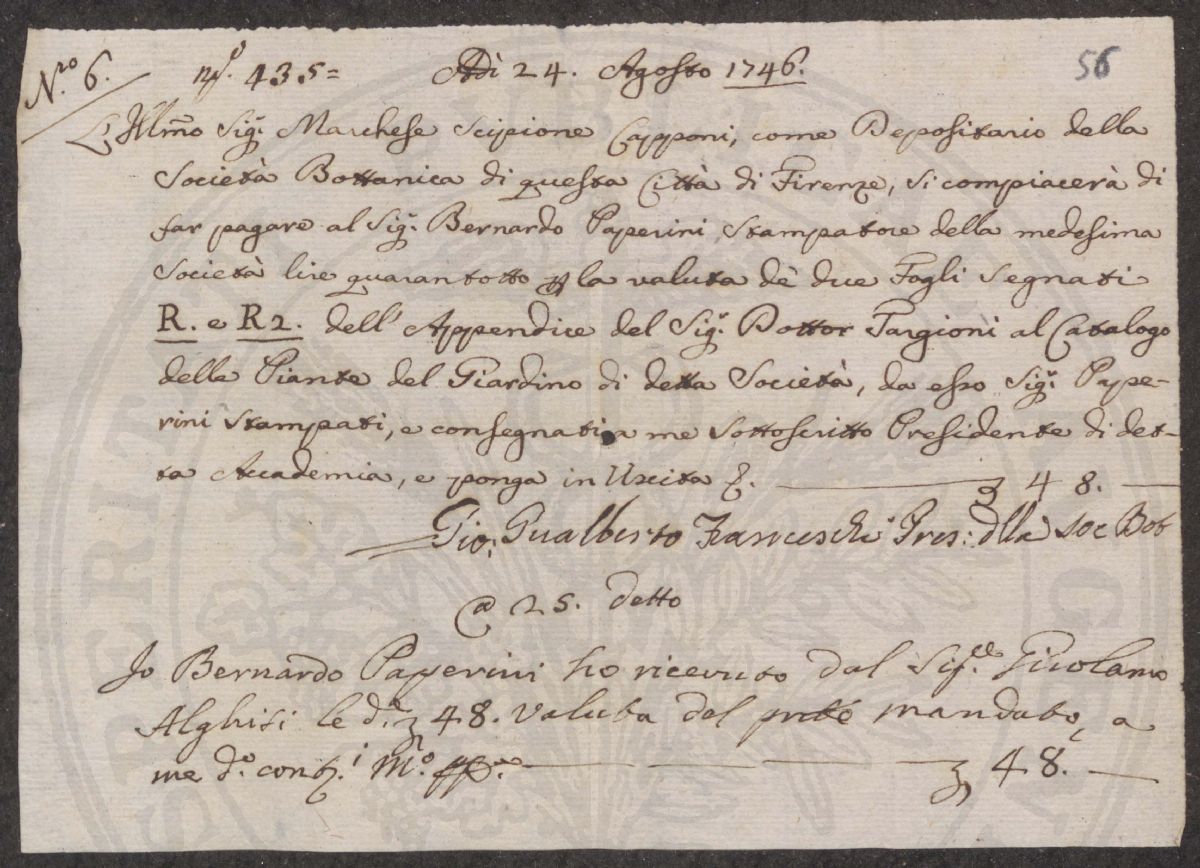 Nro 6.
435= Adì 24. Agosto 1746. 56
L'Illmo Sigr. Marchese Scipione Capponi, come Depositario della
Società Bottanica di questa Città di Firenze, si compiacerà di
far pagare al Sigr. Bernardo Paperini Stampatore della medesima
Società lire quarantotto p la valuta dè due Fogli Segnati
R. e R2. dell'Appendice del Sigr. Dottor Targioni al Catalogo
delle Piante del Giardino di detta Società, da esso Sigr. Pape-
rini Stampati, e consegnati a me Sottoscritto Presidente di det-
ta Accademia, e ponga in Uscita 48.
Gio. Gualberto Franceschi Pres: dlla Soc Bot
@ 25. detto
Io Bernardo Paperini ho ricevuto dal Sigre Girolamo
Alghisi le d. 48. valuta del pnte mandato, a
me do. conti Mo. 48.